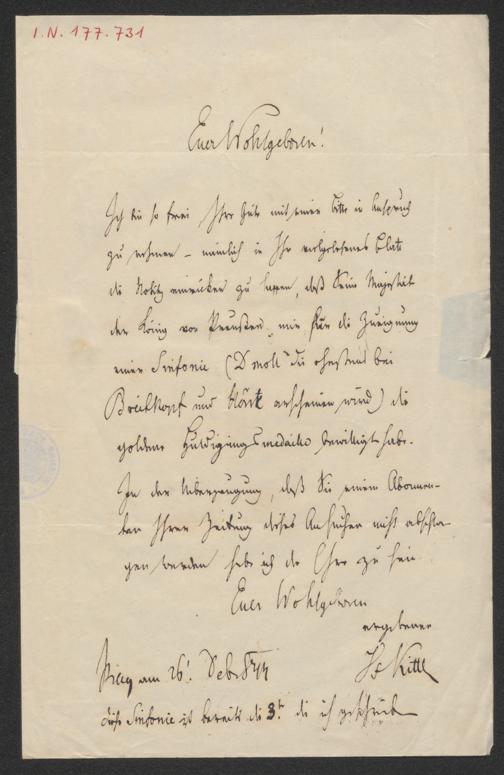 I.N. 177.731
Euer Wohlgeboren!
Ich bin so frei Ihre Güte mit einer Bitte in Anspruch
zu nehmen – nämlich in Ihr vielgelesenes Blatt
die Notitz einrücken zu lassen, daß Seine Majestät
der König von Preussen, mir für die Zueignung
einer Sinfonie (D moll die ehestens bei
Breitkopf und Härtl erscheinen wird) die
goldene Huldigungsmedaille bewilligt habe.
In der Ueberzeugung, daß Sie einem Abonnen-
ten Ihrer Zeitung dieses Ansuchen nicht abschla-
gen werden habe ich die Ehre zu sein
Euer Wohlgeboren
ergebener
Kittl
Prag am 26!
diese Sinfonie ist bereits die 3te die ich geschrieben